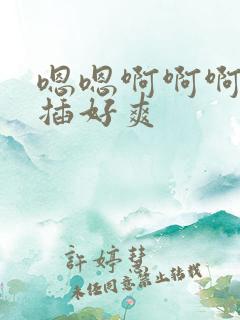 嗯嗯啊啊啊
插好爽
許婷慧
未经同意禁止转载